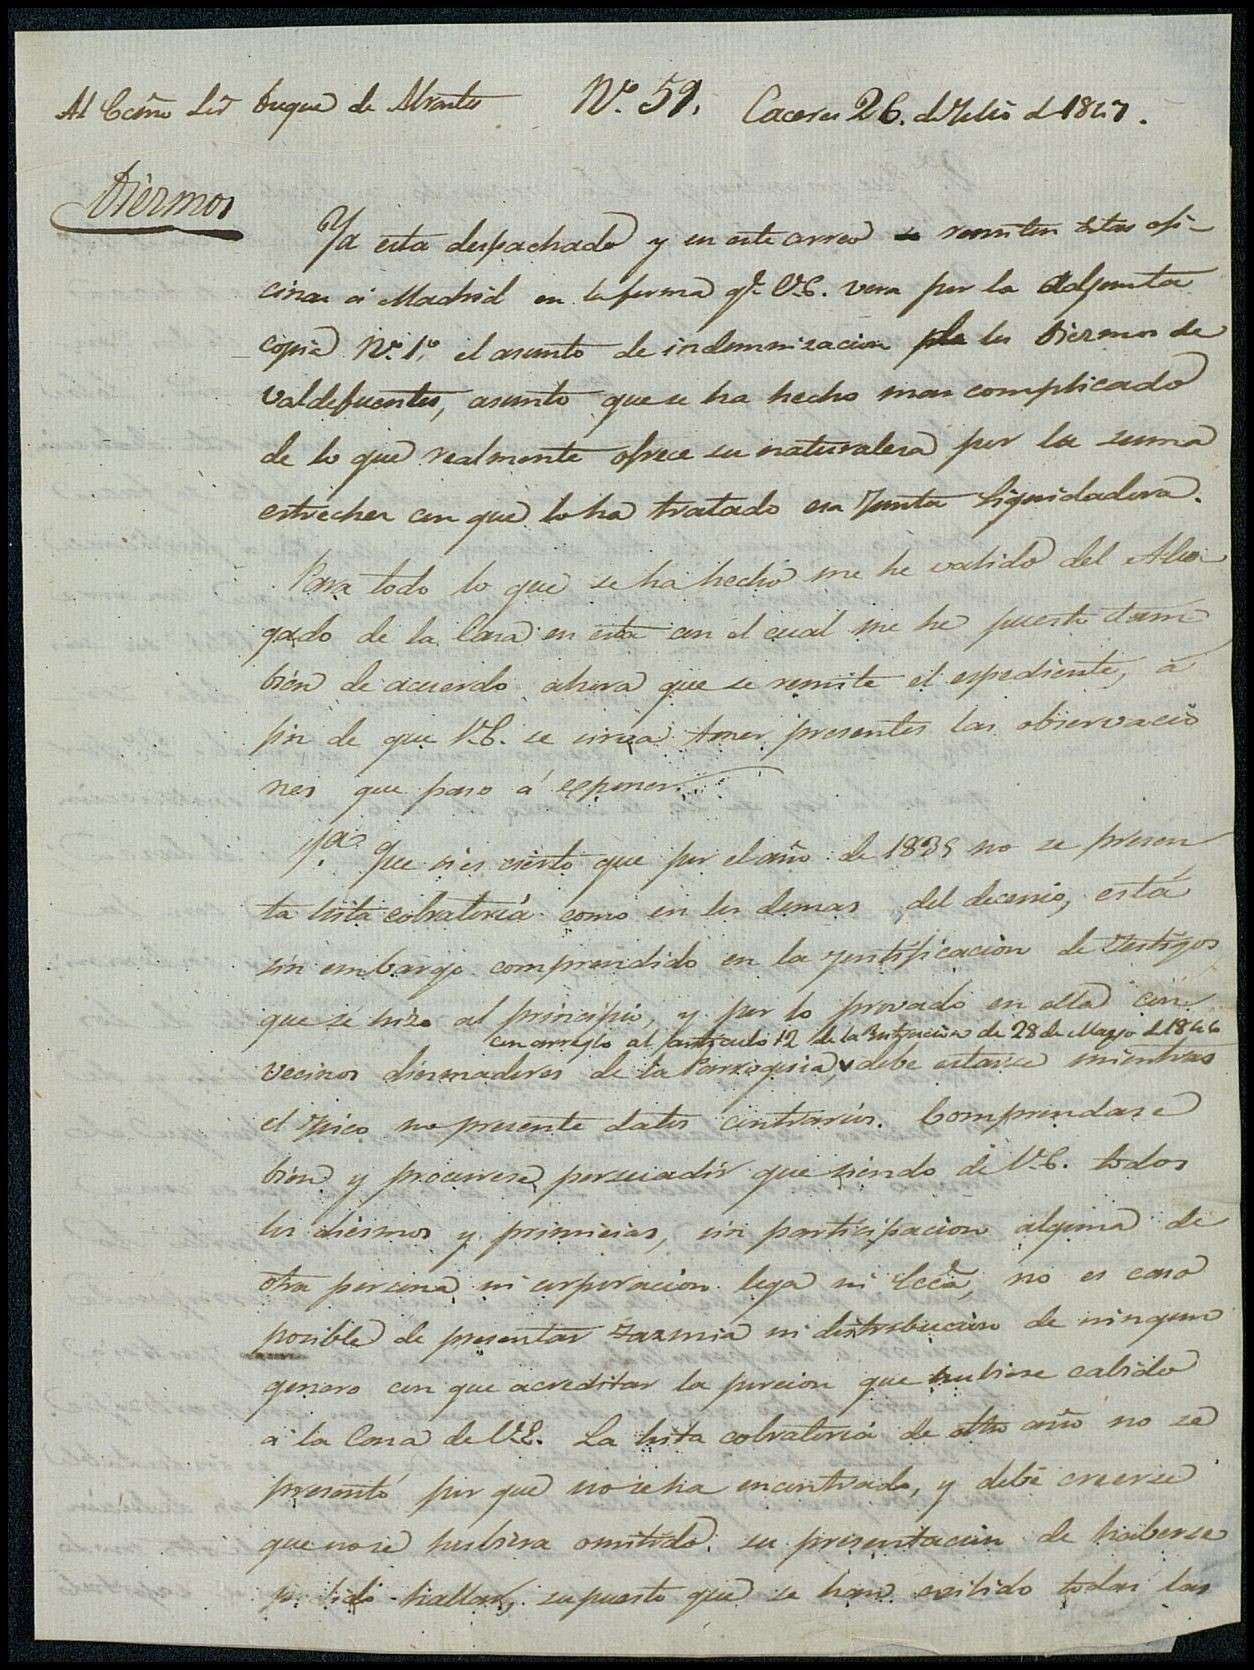 Al Ecsmo Sr Duque de Abrantes Nº 59. Caceres 26. de Julio d 1847.
Diezmos
Ya esta despachado y en este correo remiten estas ofi-
cinas á Madrid en la forma qe. V.E. vera por la adjunta
copia Nº 1º, el asunto de indemnizacion de los Diezmos de
Valdefuentes, asunto que se ha hecho mas complicado
de lo que realmente ofrece su naturaleza por la suma
estrechez con que lo ha tratado esa Junta liquidadora.
Para todo lo que se ha hecho me he valido del Abo
gado de la Casa en esta con el cual me he puesto tam
bien de acuerdo ahora que se remite el espediente, á
fin de que V.E. se sirva tener presentes las observacio
nes que paso á esponer.
1ª. Que si es cierto que por el año de 1835 no se presen
ta lista cobratoria como en los demas del decenio, está
sin embargo comprendido en la justificacion de testigos
que se hizo al principio, y por lo provado en ella con
con arreglo al articulo 12 de la Instruccion de 28 de Mayo d 1846
vecinos diezmadores de la Parroquia, v debe estarse mientras
el fisco no presente datos contrarios. Comprendase
bien y procurese persuadir que siendo de V.E. todos
los diesmos y primicias, sin participacion alguna de
otra persona ni corporacion lega ni Ecca, no es caso
posible de presentar Tazmia ni distribucion de ningun
genero con que acreditar la porcion que hubiese cabido
á la Casa de V.E. La lista cobratoria de otro año no se
presentó por que no se ha encontrado, y debe creerse
que no se hubiera omitido su presentacion de haberse
podido hallar, supuesto que se han exibido todas las